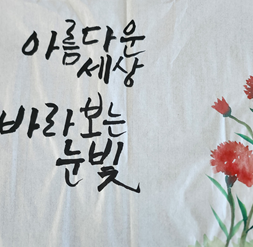 아름다운
세상
바라보는
눈빛